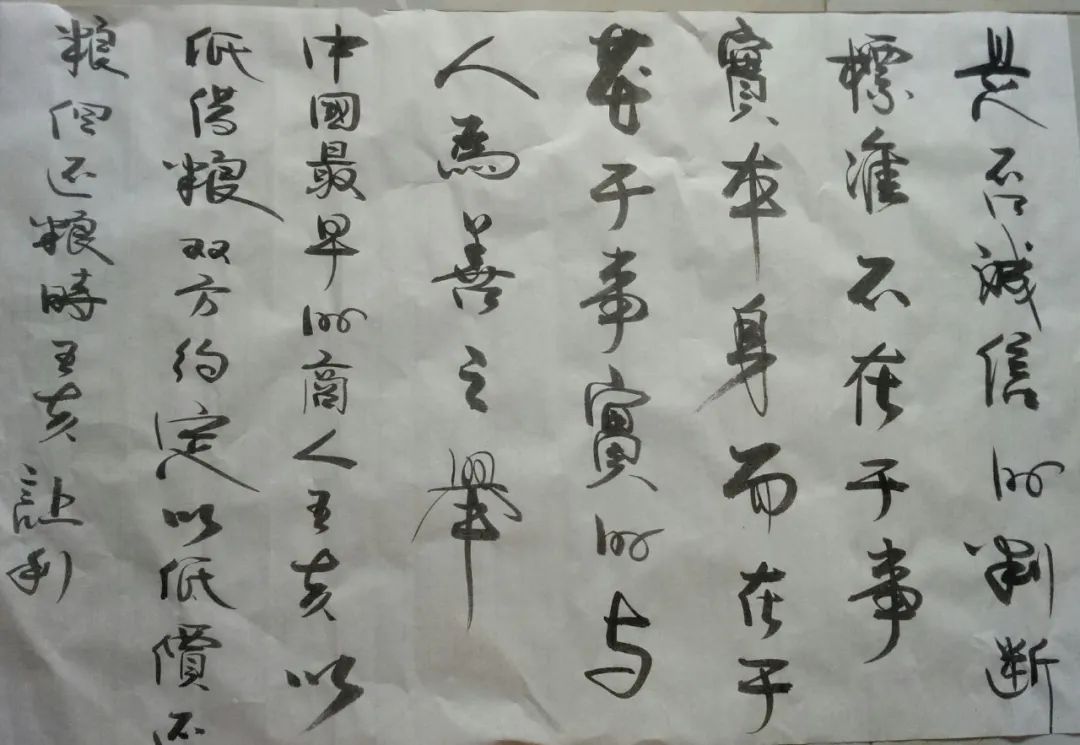 是否诚信的判断
標準不在于事
實本身而在于
基于事實的与
人為善之舉
中國最早的商人王亥以
低借粮双方约定以低價还
粮但还粮時王亥讓利